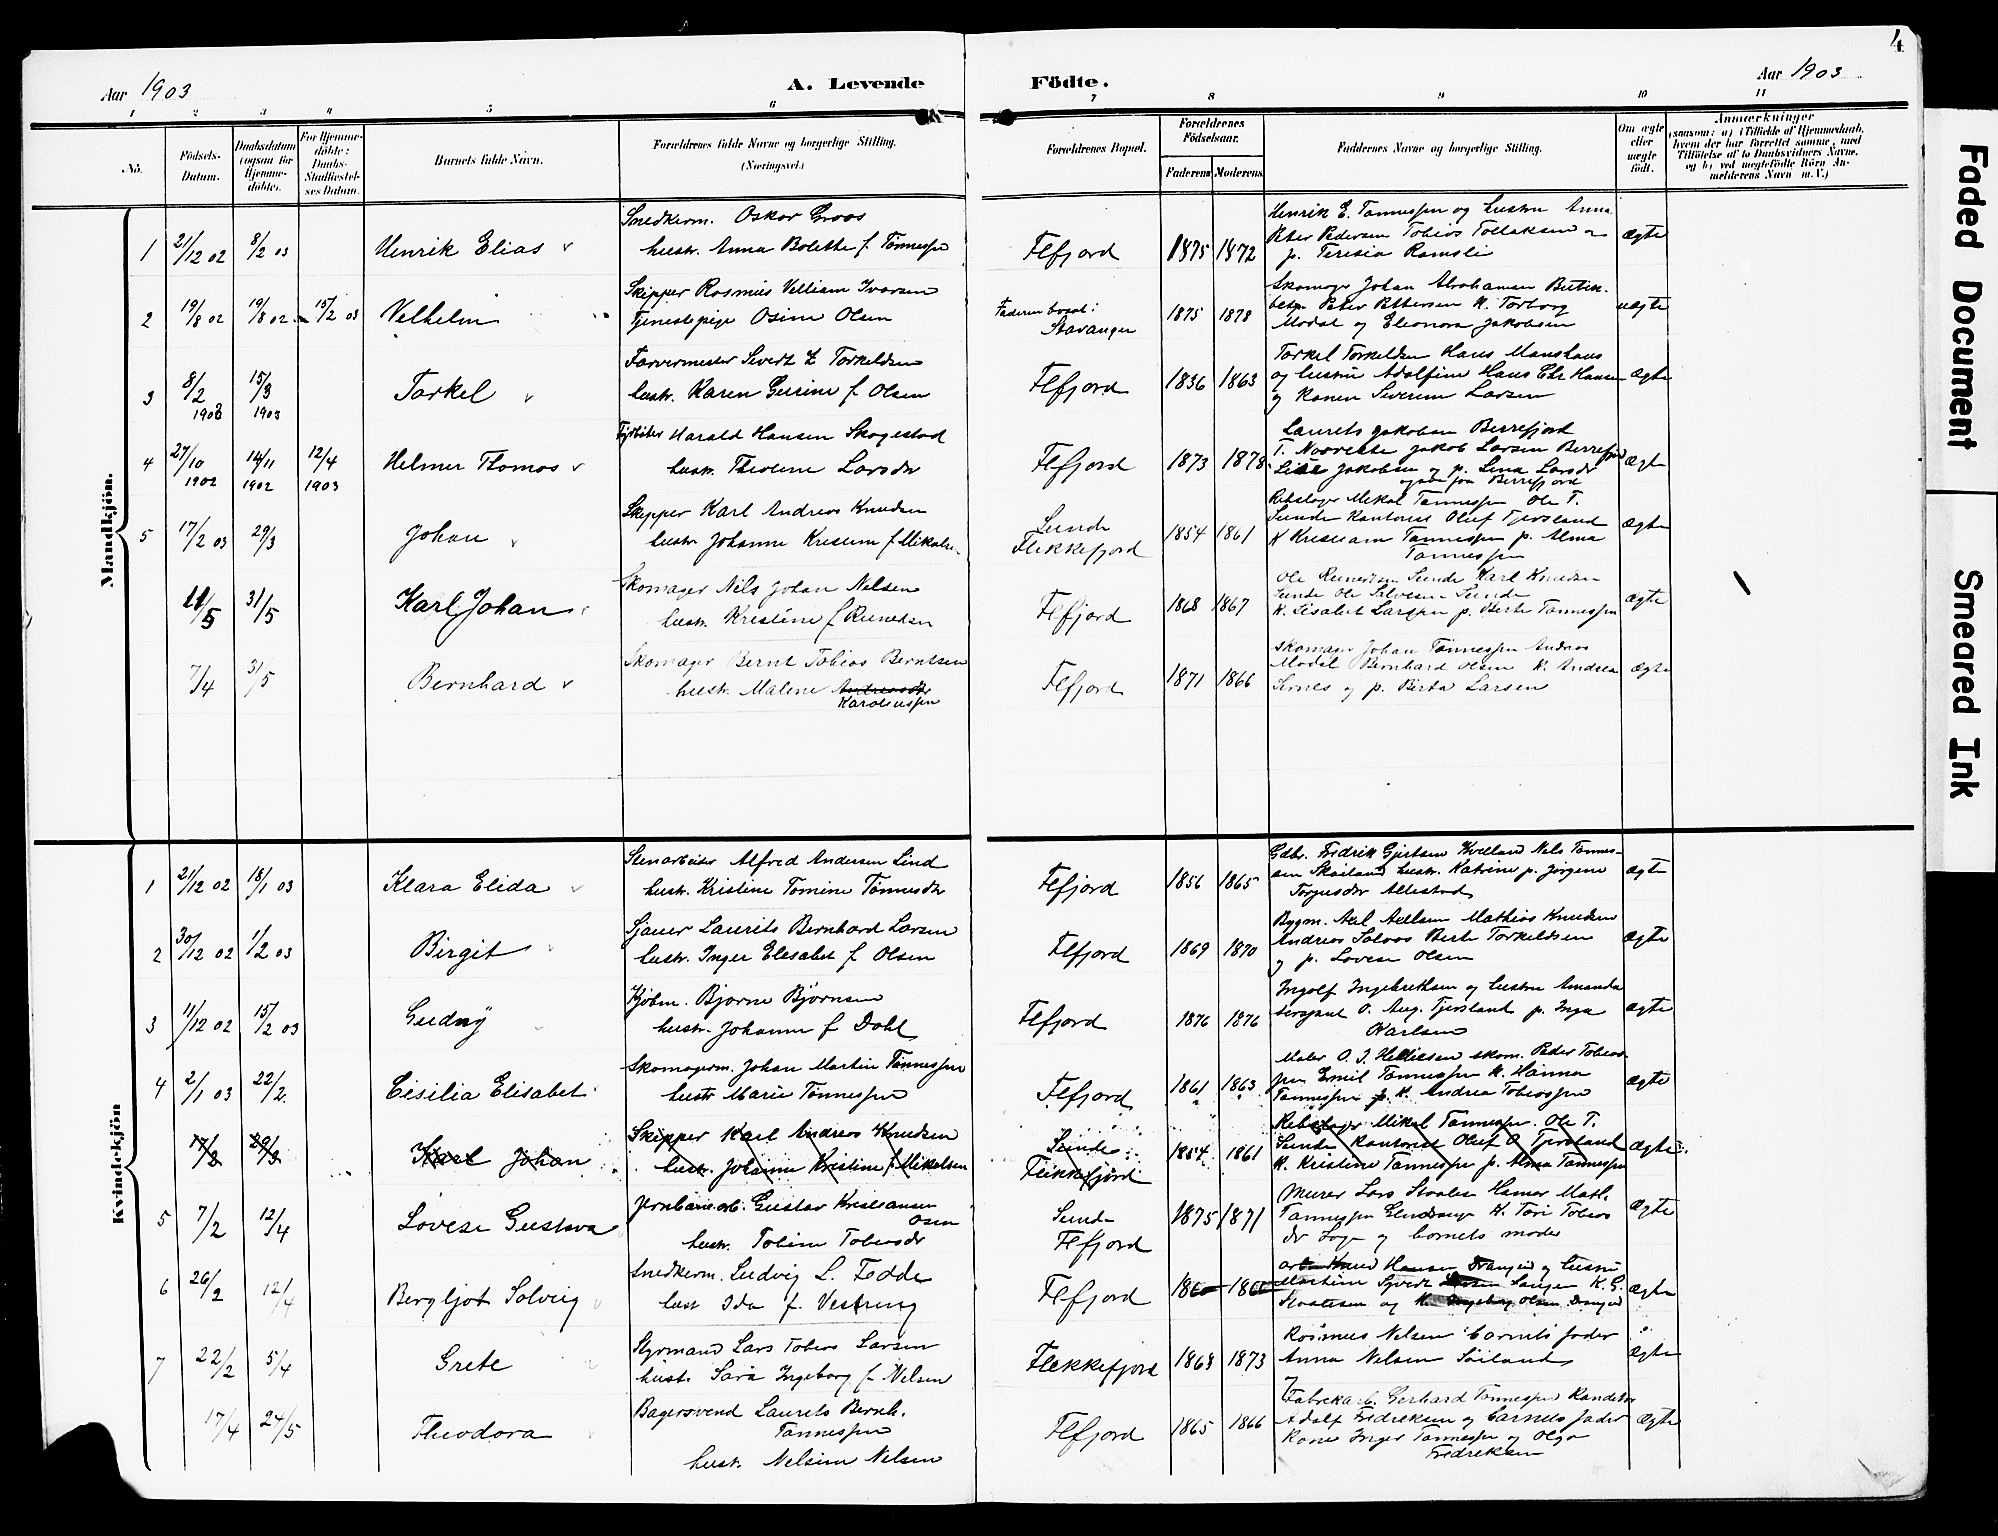 4
Aar 1903
A. Levende
Födte.
Aar 1903
1 2 3 4 5 6 7 8 9 10 11
No.
Födsels-Datum.
Daabsdatum (ogsaa for Hjemmedöbte).
For Hjemmedöbte: Daabs-Stadfæstelses Datum.
Barnets fulde Navn.
Forældrenes fulde Navne og borgerlige Stilling.
(Næringsvei.)
Forældrenes Bopæl.
Forældrenes Födselsaar.
Faderens Moderens
Faddernes Navne og borgerlige Stilling.
Om ægte eller uægte födt.
Anmærkninger
(saasom: a) i Tilfælde af Hjemmedaab, hvem der har forrettet samme, med Tilföielse af to Daabsvidners Navne, og b) ved uægtefödte Börn Anmelderens Navn m. V.)
Mandkjön.
1 21/12 02 8/2 03 Henrik Elias
Snedkerm. Oskar Groos
hustr. Anna Bolette f Tønnespn
Flfjord 1875 1872
Henrik E. Tønnespn og hustru Anna
Peter Pedersen Tobias Tollaksen
p. Teresia Ramsli
ægte
2 19/8 02 19/8 02 15/2 03 Velhelm
Skipper Rasmus Velliam Ivarsen
Tjenestepige Osine Olsen
Faderen bosat:
Stavanger 1875 1878
Skomager Johan Abrahamsen
Peter Pettersen K. Torborg
Modal og Eleonora Jakobsen
uægte
3 8/2 1903 15/3 1903 Torkel
Farvermester Sivert E Torkeldsen
hustr. Karen Gurine f Olsen
Flfjord 1836 1863
Torkel Torkeldsen Hans Manshaus
og hustru Adolfine Hans Chr Hansen
og Karen Severine Larsen
ægte
4 27/10 1902 14/11 1902 12/4 1903 Helmer Thomas
Harald Hansen Skogestad
hustr. Theoline Larsdr
Flfjord 1873 1878
Laurits Jakobsen Berrefjord
Jakob Larsen Berrefjord
Jakobsen og p. Lina Larsdr
Berrefjord
ægte
5 17/2 03 29/3 Johan
Skipper Karl Andreas Knudsen
hustr Johanne Kristine f Mikalsn
Sunde
Flekkefjord 1854 1861
Rebslager Mikal Tønnespn Ole T.
Sunde Kantorist Oluf Tjersland
K Kristiane Tønnespn p. Alma
Tønnespn
ægte
11/5 31/5 Karl Johan
Skomager Nils Johan Nelsen
hustr. Kristine f Reinertsen
Flfjord 1868 1867
Ole Reinertsen Sunde Karl Knudsen
Sunde Ole Salvesen Sunde
K. Lisabet Larspn p. Berte Tønnespn
ægte
7/4 31/5 Bernhard
Skomager Bernt Tobias Berntsen
hustr. Malene Andreasdr
Karoliuspn
Flfjord 1871 1866
Skomager Johan Tønnespn Andreas
Modal Bernhard Olsen K. Andrea
Sirnes og p. Berta Larsen
ægte
Kvindekjön
1 21/12 02 18/1 03 Klara Elida
Stenarbeider Alfred Andersen Lind
hustr. Kristine Tomine Tønnesdr
Flfjord 1856 1865
Gdbr. Fredrik Gjertsen Kvelland Nels Tønnes-
sen Skailand hustr. Katrine p. Jørgine
Torgusdr Allestad
ægte
2 30/12 02 1/2 03 Birgit
Sjauer Laurits Bernhard Larsen
hustr. Inger Elesabet f Olsen
Flfjord 1869 1870
Bygm. Axel Axelsen Mathias Knudsen
Andreas Salvas Berte Torkeldsen
og p. Lovise Olsen
ægte
3 11/12 02 15/2 03 Gudny
Kjøbm. Bjarne Bjørnsen
hustr. Johanne f Dahl
Flfjord 1876 1876
Ingolf Ingebretsen og hustru Amanda
sersjant O. Aug. Tjersland p. Inga
Karlsen
ægte
4 2/1 03 22/2 Cisilia Elisabet
Skomagerm. Johan Martin Tønnespn
hustr Marie Tønnespn
Flfjord 1861 1863
Maler O. J. Helliesen skom. Peder Tobias-
spn Emil Tønnespn K. Hanna
Tønnespn K. Andrea Tobiasspn
ægte
17/2 29/3 Karl Johan
Skipper Karl Andreas Knudsen
hustr. Johanne Kristine f Mikalsen
Sunde
Flekkefjord 1854 1861
Rebslager Mikal Tønnespn. Ole T.
Sunde Kantorist Oluf O Tjersland
K. Kristine Tønnespn p. Alma Tønnespn
ægte
5 7/2 12/4 Lovise Gustava
Jernbanearb. Gustav Kristiansen
Osen
hustr. Tobine Tobiasdr
Sunde
Flfjord 1875 1871
Murer Lars Staalesen Hamar Math.
Tønnespn K. Tori Tobias
dr og barnets moder
ægte
6 26/2 12/4 Bergljot Solveig
Snedkerm. Ludvig L. Fedde
hust Ida f. Vestrung
Flfjord
og hustru
Martine Sivert K. G.
Staalesen og K. Ingeborg Olsen
ægte
7 22/2 5/4 Grete
Styrmand Lars Tobias Larsen
hustr. Sara Ingeborg f Nelsen
Flekkefjord 1863 1873
Rasmus Nelsen barnets fader
Anna Nelsen Søiland
ægte
17/4 24/5 Theodora
Bagersvend Laurits Bernh.
Tønnespn
hustr. Nelsine Nelsen
Flfjord 1865 1866
Fabrekarb. Gerhard Tønnespn
Adolf Fredreksen og barnets fader
Kone Inger Tønnespn og Olga
Fredreksen
ægte
Faded Document
Smeared Ink